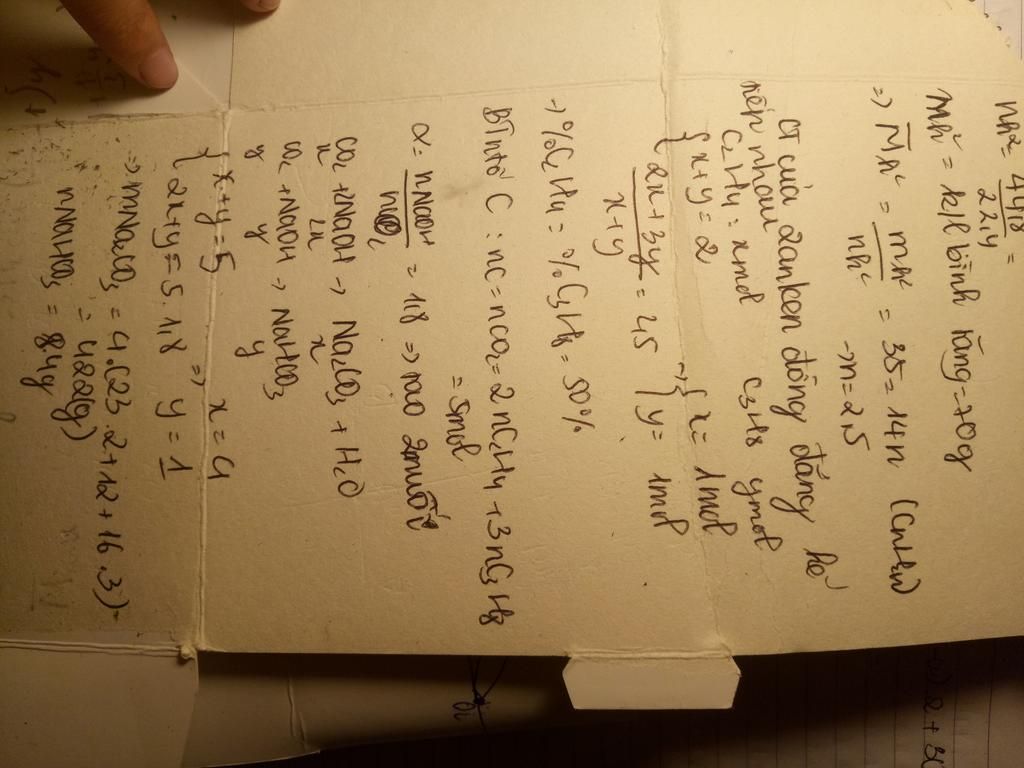 nh² = 44,8 / 22,4 =
mh² = k/l bình tăng = 70g
=> M̄h² = mh² / nh² = 35 = 14n (CnH2n)
→ n = 2,5
CT của 2anken đồng đẳng kế
tiếp nhau
C2H4 : xmol C3H8 ymol
{ x + y = 2
2x + 3y / x + y = 2,5 } → { x = 1mol
y = 1mol
→ %C2H4 = %C3H8 = 50%
BTntố C : nC = nCO2 = 2nC2H4 + 3nC3H8
= 5mol
α = nNaOH / nCO2 = 1,8 => tạo 2muối
CO2 + 2NaOH → Na2CO3 + H2O
x 2x x
CO2 + NaOH → NaHCO3
y y y
{ x + y = 5
2x + y = 5.1,8 => x = 4
y = 1
=> mNa2CO3 = 4.(23.2 + 12 + 16.3)
= 422(g)
mNaHCO3 = 84g